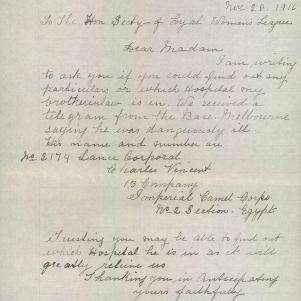 Nov 28. 1916
To The Hon Secty of Loyal Womens League
Dear Madam
I am writing
to ask you if you could find out any
particulars or which Hospital my
brotherinlaw is in. We received a
telegram from the Base. Melbourne
saying he was dangerously ill.
His name and number are
No 2174 Lance Corporal
Charles Vincent
13 Company
Imperial Camel Corps
No 2 Section. Egypt
Trusting you may be able to find out
which Hospital he is in as it will
greatly relieve us
Thanking you in Anticipating
yours faithfully